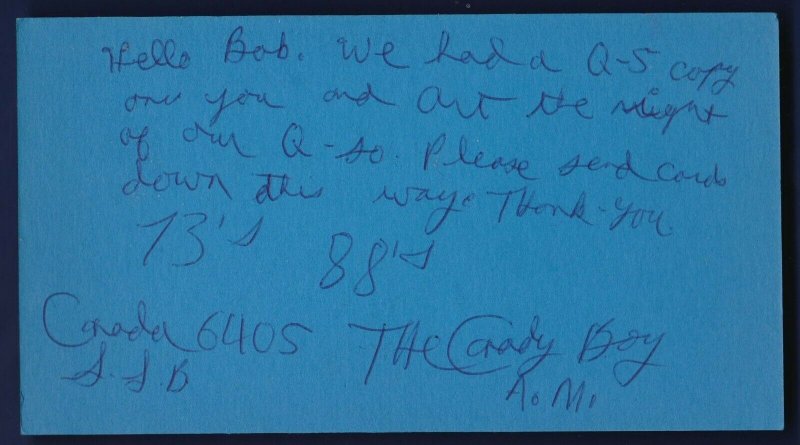 Hello Bob. We had a Q-5 copy
on you and Art the night
of our Q-so. Please send cards
down this way. Thank-you.
73's 88's
Canada 6405 THE Candy Boy
S.S.B A.M.